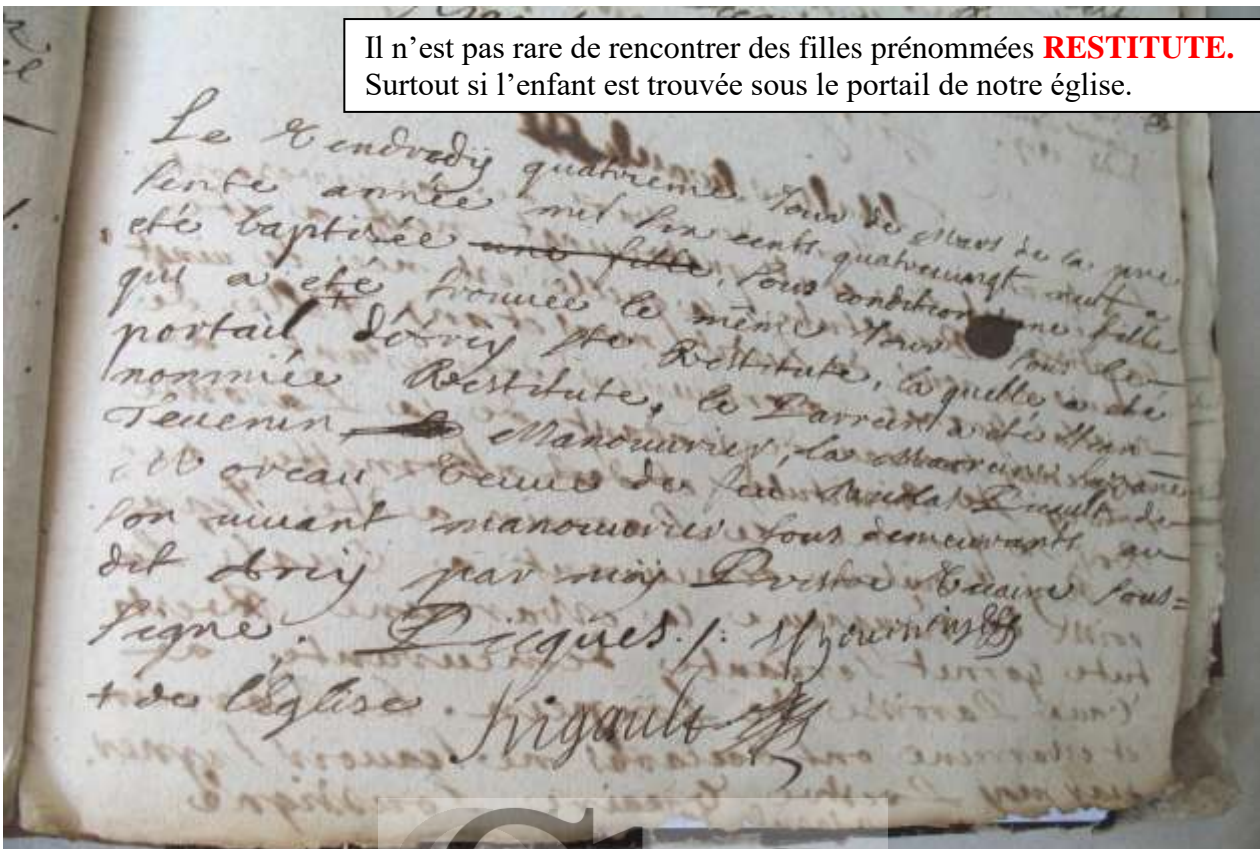 Il n’est pas rare de rencontrer des filles prénommées RESTITUTE.
Surtout si l’enfant est trouvée sous le portail de notre église.
Le Vendredy quatrieme Jour de Mars de la pre
sente année mil six cents quatrevingt neuf a
eté baptisée une fille, sous condition une fille
qui a eté trouvée le même Jour sous le
portail d'Arcy Ste Restitute, laquelle a eté
nommée Restitute, le Parrain a été Jean
Tevenin Manouvrier, la Marraine
Moreau veuve de feu Nicolas de
son vivant manouvrier tous demeurants au
dit Arcy par moy Prestre Vicaire sous=
signé. Picques
+ de l'église